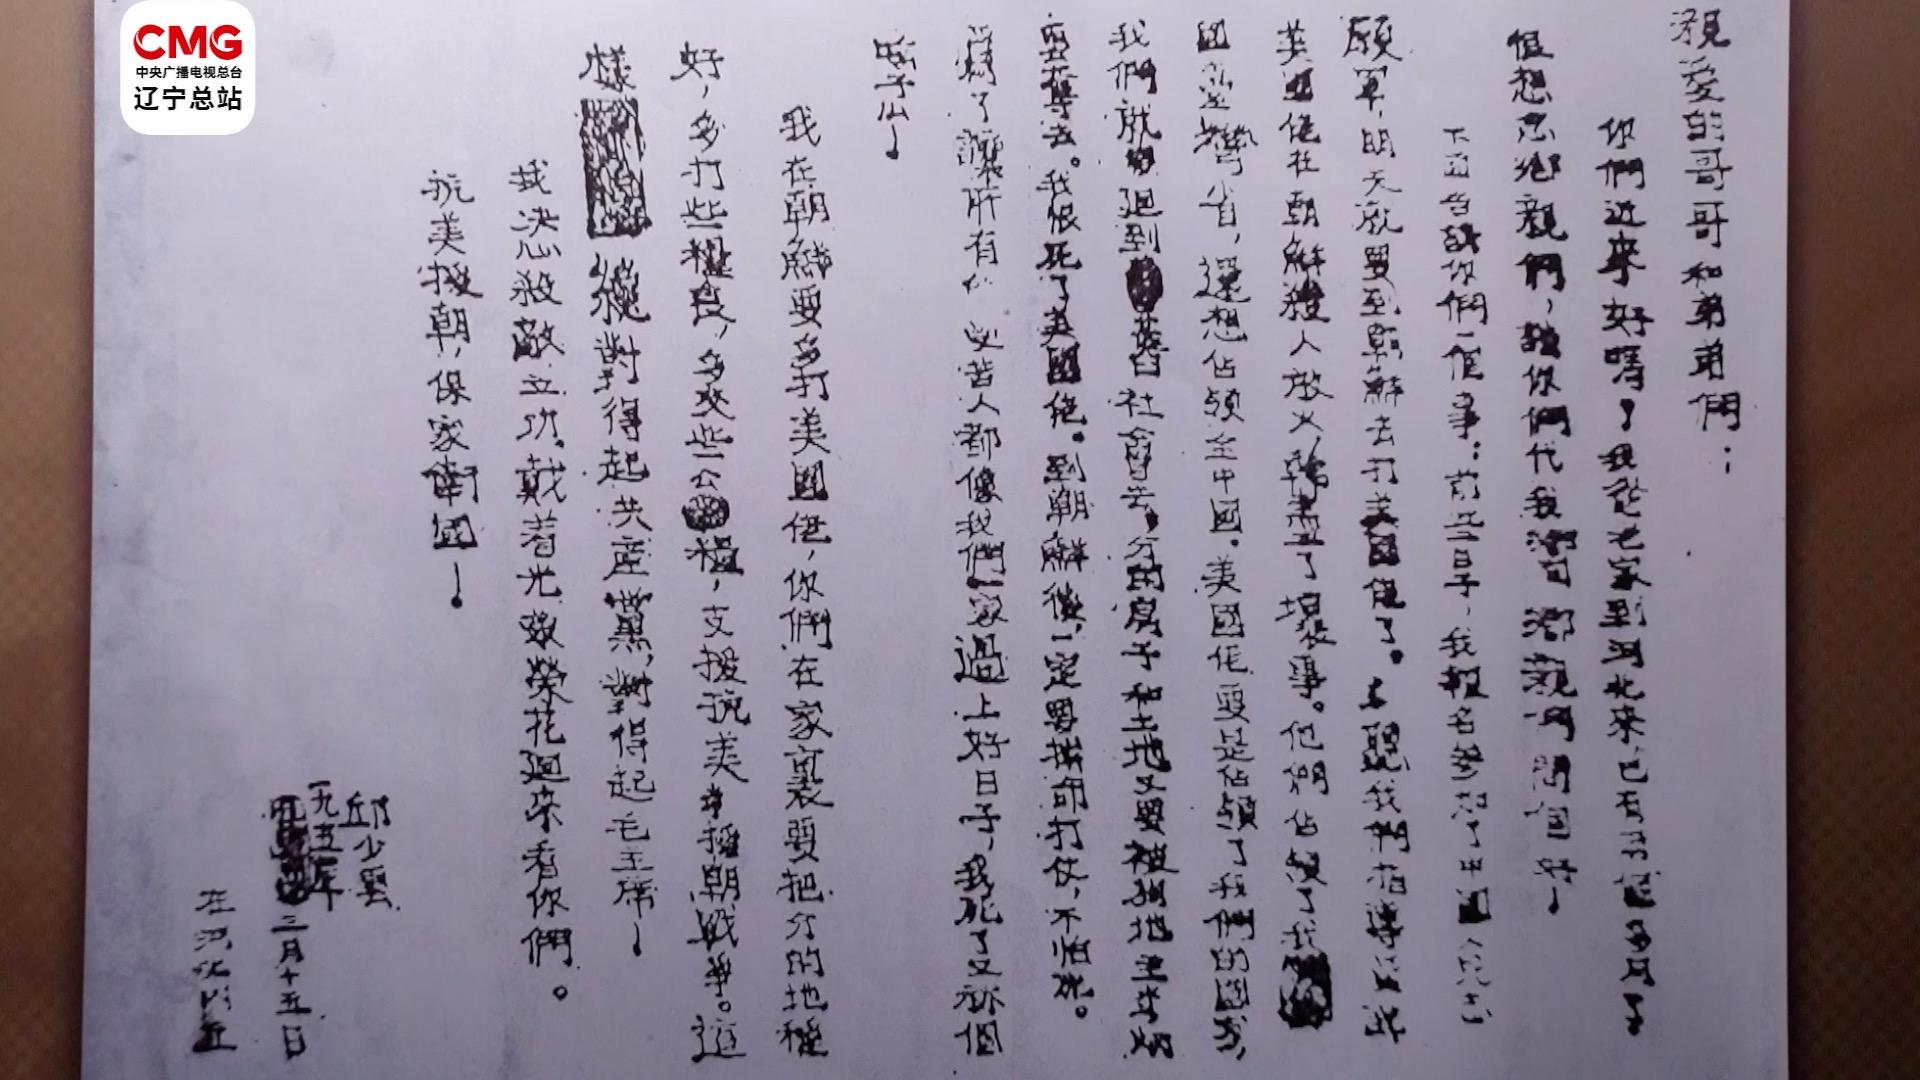 CMG
中央广播电视总台
辽宁总站
親爱的哥哥和弟弟們：
你們近來好嗎？我從老家到河北來已有個多月了
但想念鄉親們，請你們代我向鄉親們問個好！
下面告訴你們一個事：前些日子，我報名參加了中國人民志
願軍，明天就要到朝鮮去打美國佬了。上聽我們指導員講
美國佬在朝鮮殺人放火，幹盡了壞事。他們佔領了我
國臺灣省，還想佔領全中國。美國佬要是佔領了我們的國家，
我們就要迴到舊社會去，分的房子和土地又要被狗地主
要奪去。我恨死了美國佬。到朝鮮後，一定要拼命打仗，不怕死。
爲了讓所有的苦人都像我們一家過上好日子，我死了又祘個
啥子仫！
我在朝鮮要多打美國佬，你們在家裏要把分的地種
好，多打些糧食，多交些公糧，支援抗美援朝戰争。這
樣 纔對得起共産黨，對得起毛主席！
我决心殺敵立功，戴着光榮花迴來看你們。
抗美援朝，保家衛國！
邱少雲
一九五年
三月十五日
在河北内丘